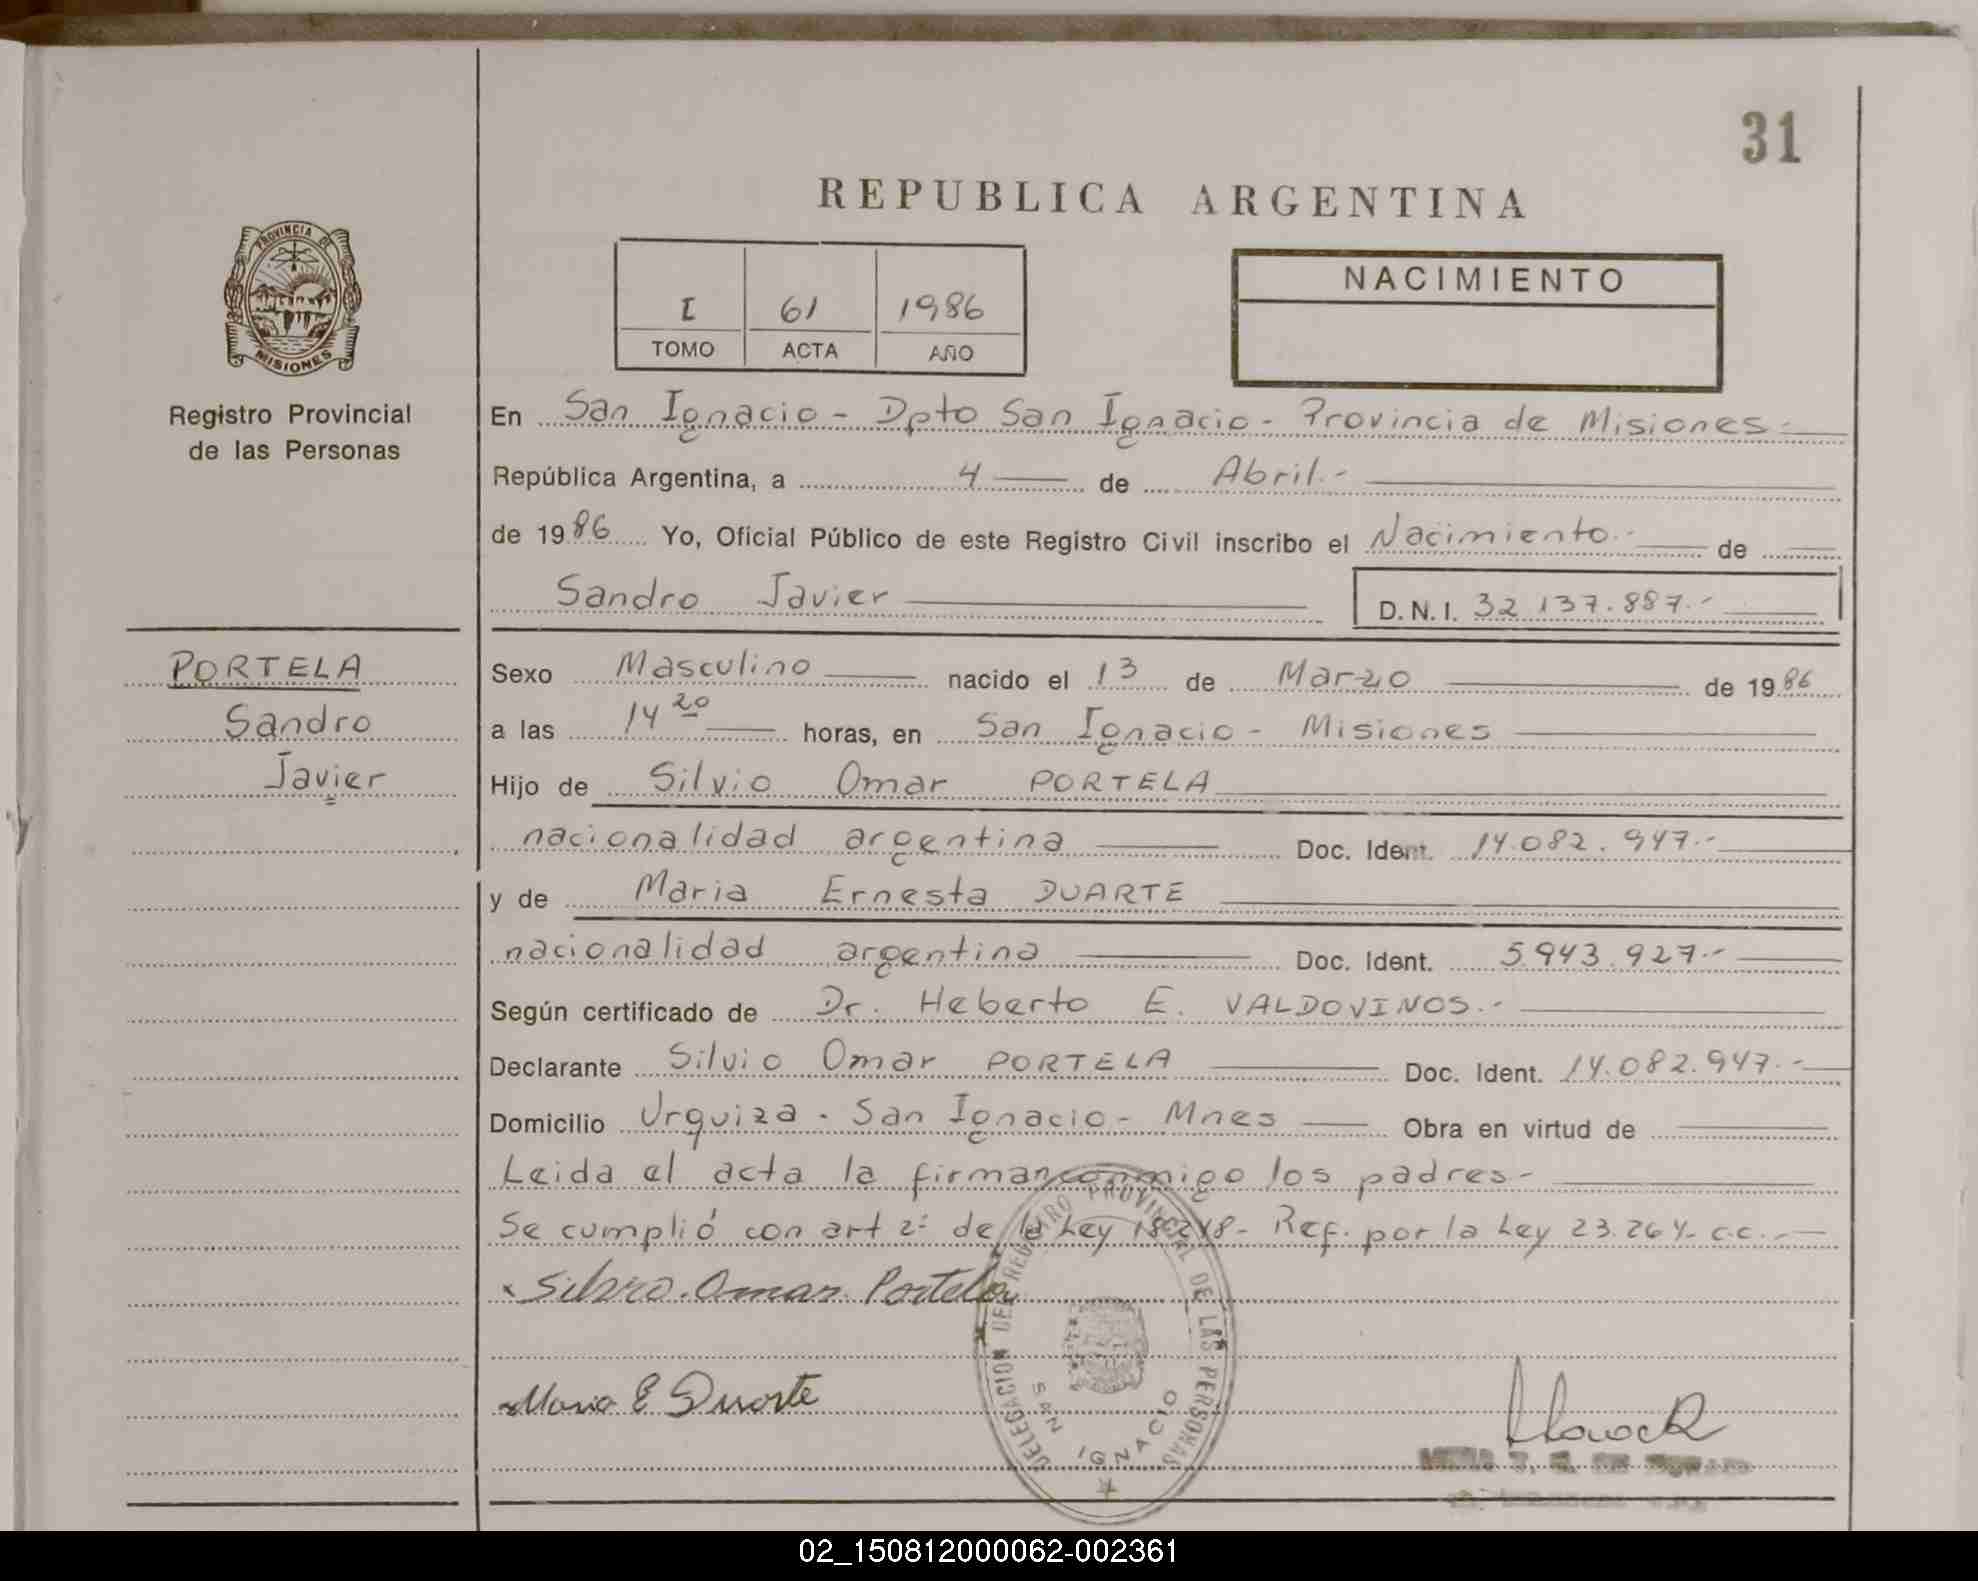 31
REPUBLICA ARGENTINA
PROVINCIA DE
MISIONES
Registro Provincial
de las Personas
I 61 1986
TOMO ACTA AÑO
NACIMIENTO
En San Ignacio - Dpto San Ignacio - Provincia de Misiones -
República Argentina, a 4 de Abril.-
de 1986 Yo, Oficial Público de este Registro Civil inscribo el Nacimiento.- de
Sandro Javier D.N.I. 32 137.887.-
PORTELA
Sandro
Javier
Sexo Masculino nacido el 13 de Marzo de 1986
a las 14 20 horas, en San Ignacio - Misiones
Hijo de Silvio Omar PORTELA
nacionalidad argentina Doc. Ident. 14.082.947.-
y de Maria Ernesta DUARTE
nacionalidad argentina Doc. Ident. 5.943.927.-
Según certificado de Dr. Heberto E. VALDOVINOS.-
Declarante Silvio Omar PORTELA Doc. Ident. 14.082.947.-
Domicilio Urquiza - San Ignacio - Mnes Obra en virtud de
Leida el acta la firman conmigo los padres -
Se cumplió con art 2º de la Ley 18248 - Ref. por la Ley 23.264 - c.c. -
Silvio Omar Portela
Maria E Duarte
DELEGACION DEL REGISTRO PROVINCIAL DE LAS PERSONAS
SAN IGNACIO
02_150812000062-002361